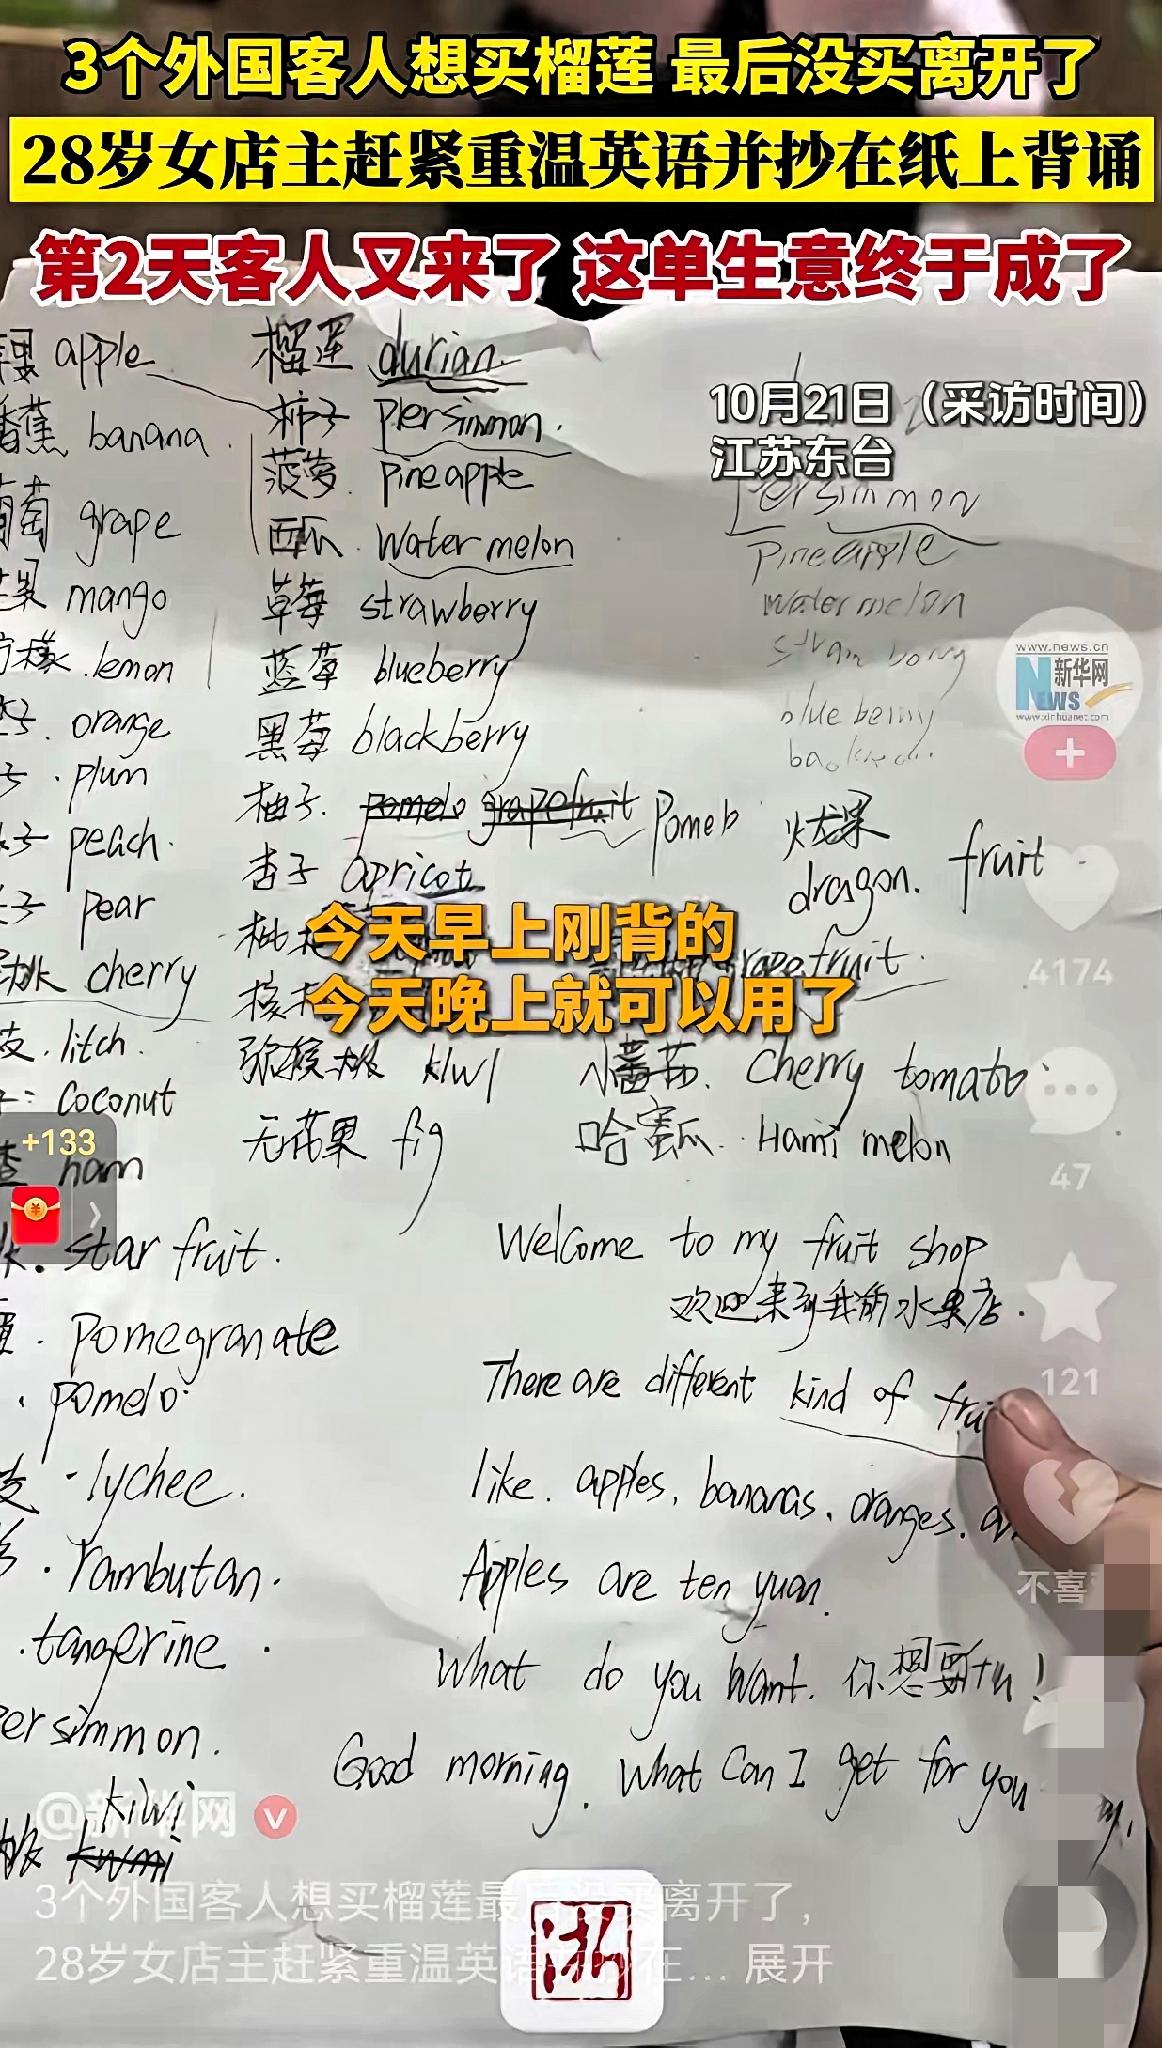 3个外国客人想买榴莲 最后没买离开了
28岁女店主赶紧重温英语并抄在纸上背诵
第2天客人又来了 这单生意终于成了
10月21日（采访时间）
江苏东台
apple
榴莲 durian
香蕉 banana
柿子 Persimmon
Persimmon
菠萝 Pineapple
Pineapple
grape
西瓜 Watermelon
watermelon
mango
草莓 strawberry
lemon
蓝莓 blueberry
orange
黑莓 blackberry
plum
柚子 pomelo grapefruit Pomelo
火龙果
dragon fruit
peach
杏子 apricot
pear
cherry
今天早上刚背的
今天晚上就可以用了
grapefruit
litch
弥猴桃 kiwi
小蕃茄 Cherry tomato
coconut
无花果 fig
哈蜜瓜 Hami melon
star fruit
Welcome to my fruit shop
欢迎来到我的水果店
pomegranate
There are different kind of
pomelo
lychee
like. apples, bananas, oranges,
rambutan
Apples are ten yuan.
tangerine
What do you want. 你想要
persimmon
Good morning. What Can I get for you
kiwi
www.news.cn
新华网
NEWS
www.xinhuanet.com
4174
47
121
不喜
+133
@新华网
3个外国客人想买榴莲最后没买离开了，
28岁女店主赶紧重温英语并抄在... 展开
浙